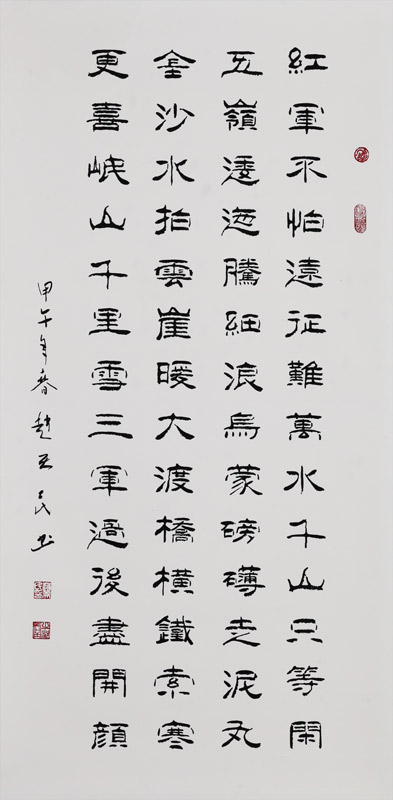 紅軍不怕遠征難萬水千山只等閑
五嶺逶迤騰細浪烏蒙磅礴走泥丸
金沙水拍雲崖暖大渡橋橫鐵索寒
更喜岷山千里雪三軍過後盡開顏
甲午年春趙民书